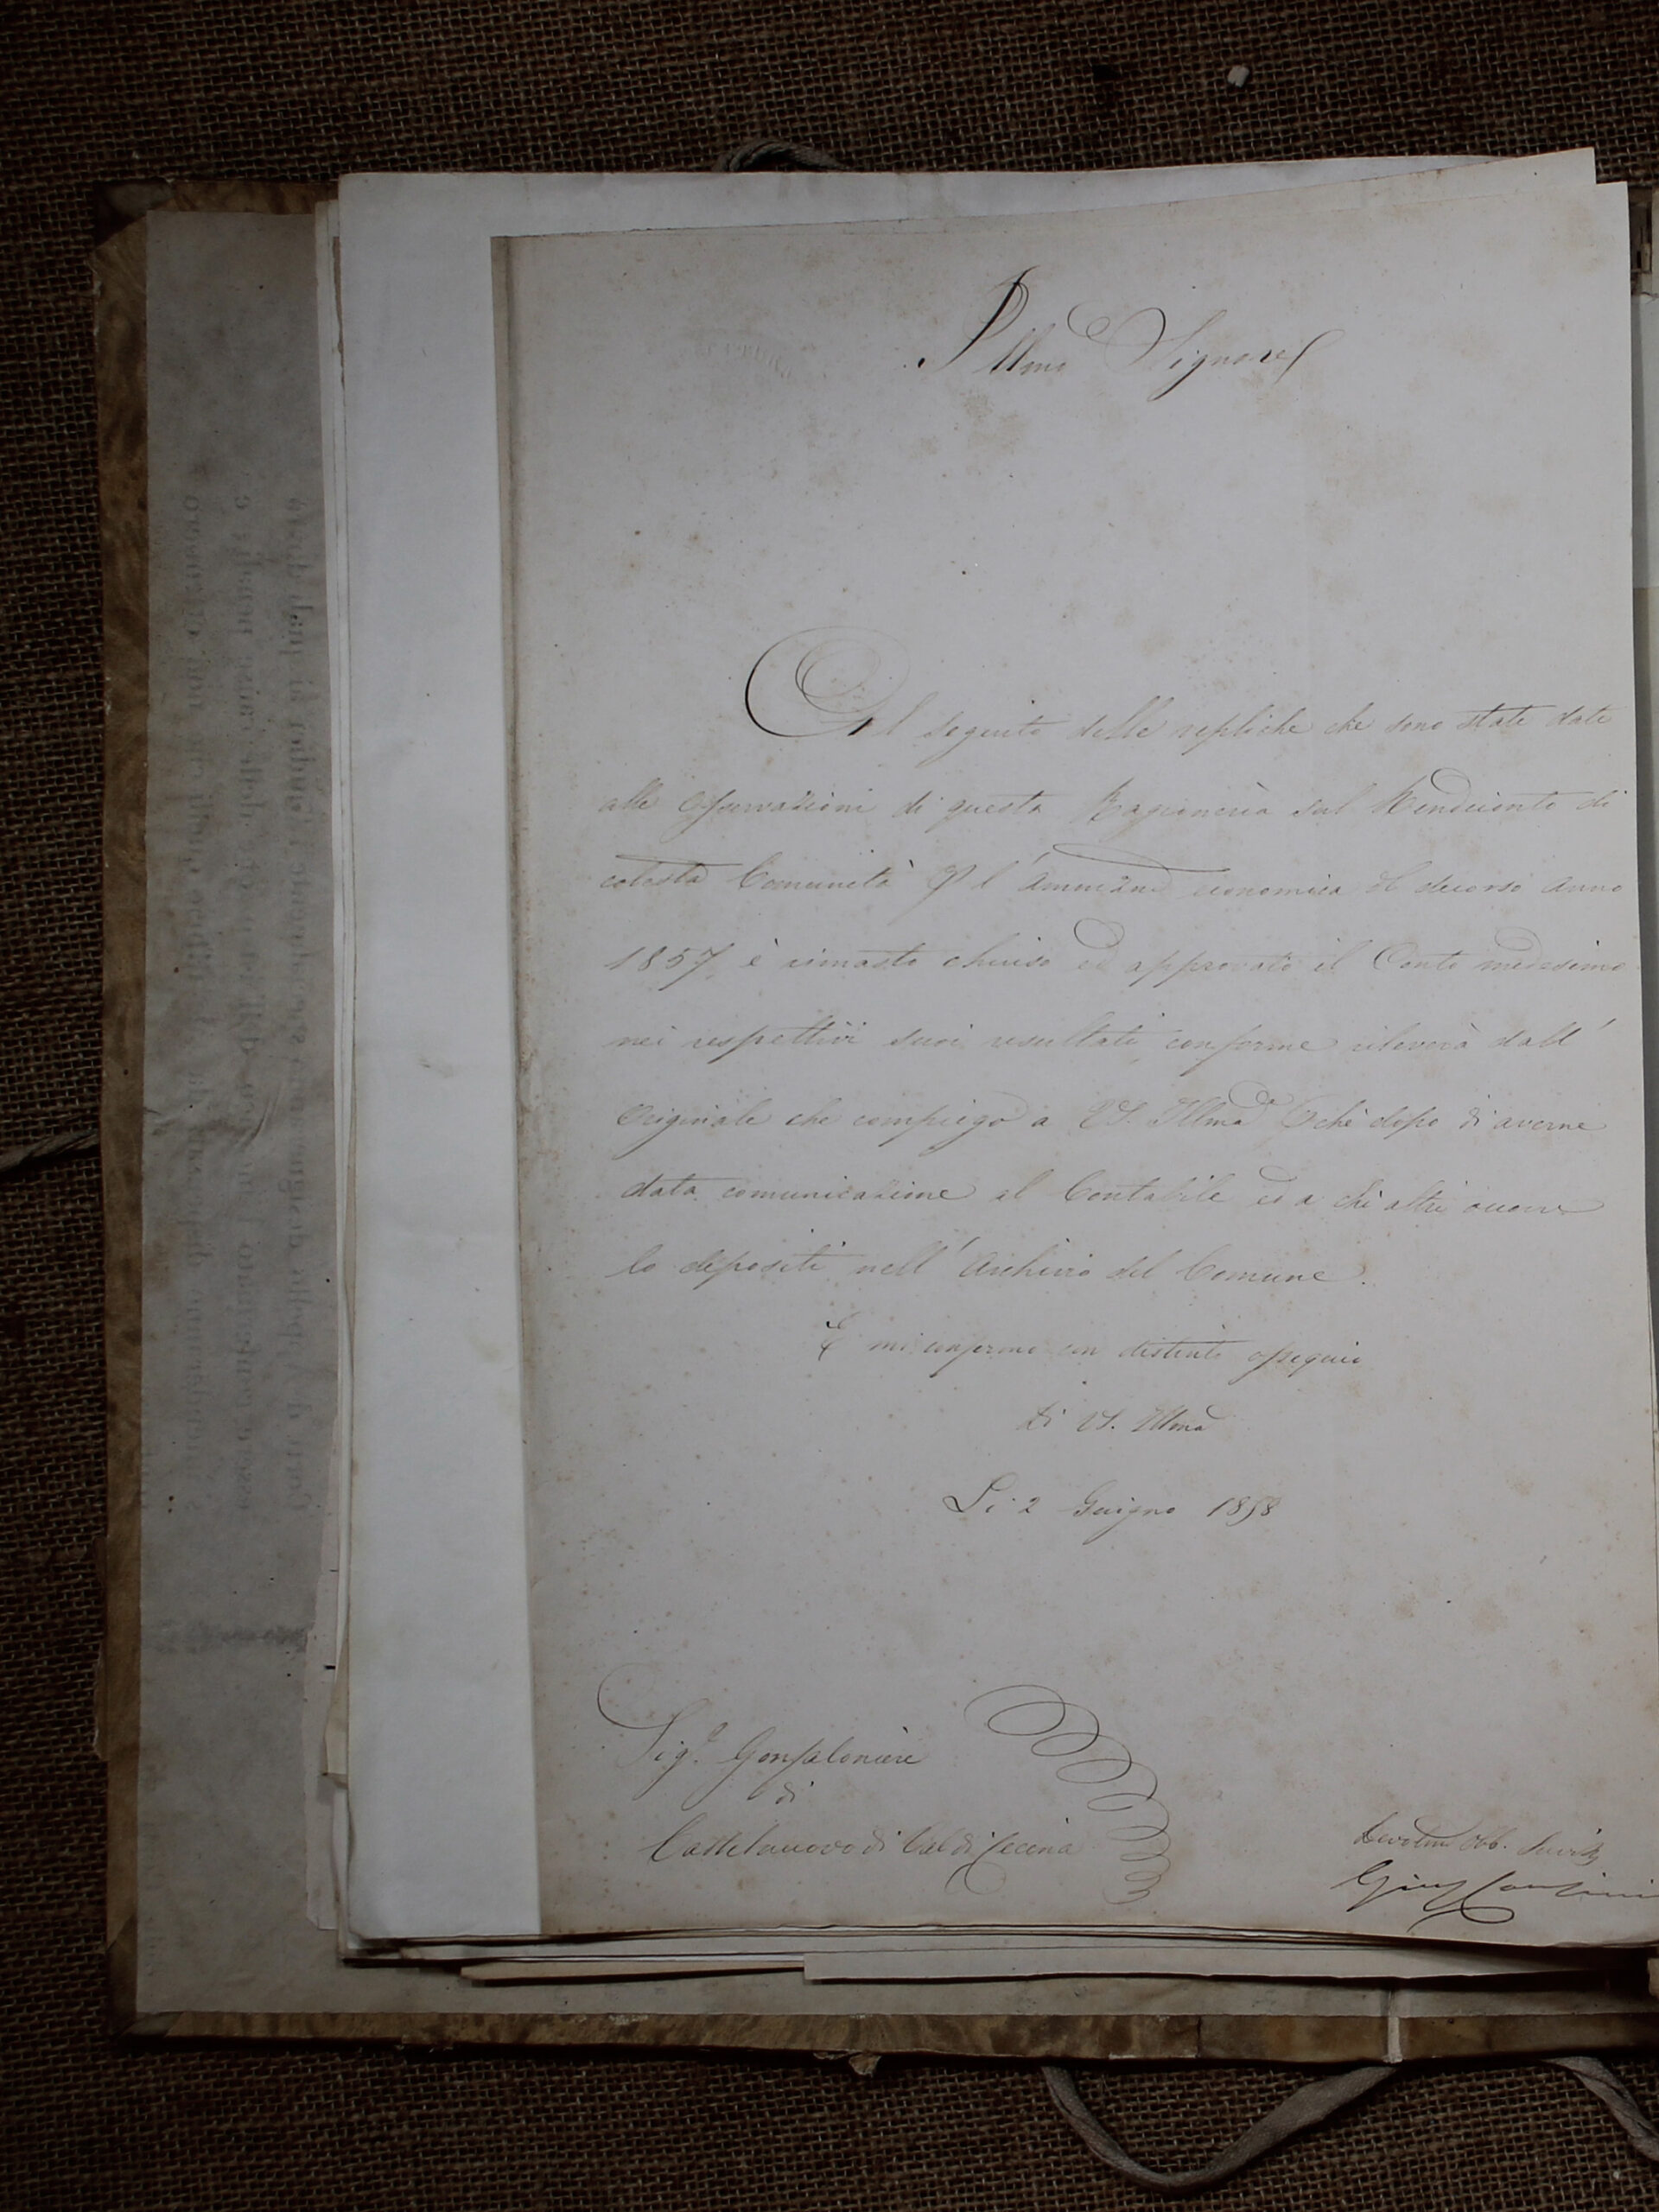 Illmo Signore
Al seguito delle repliche che sono state date
alle Osservazioni di questa Ragioneria sul Rendiconto di
cotesta Comunità l'Ammzne economica del decorso anno
1857, è rimasto chiuso ed approvato il Conto medesimo
nei respettivi suoi resultati, conforme rileverà dall'
Originale che compiego a VS. Illma che dopo di averne
data comunicazione al Contabile ed a chi altri occorre
lo depositi nell'Archivio del Comune.
E mi confermo con distinto ossequio
Di VS. Illma
Li 2 Giugno 1858
Sigr. Gonfaloniere
di
Castelnuovo di Val di Cecina
Devotmo Obb. Servitre